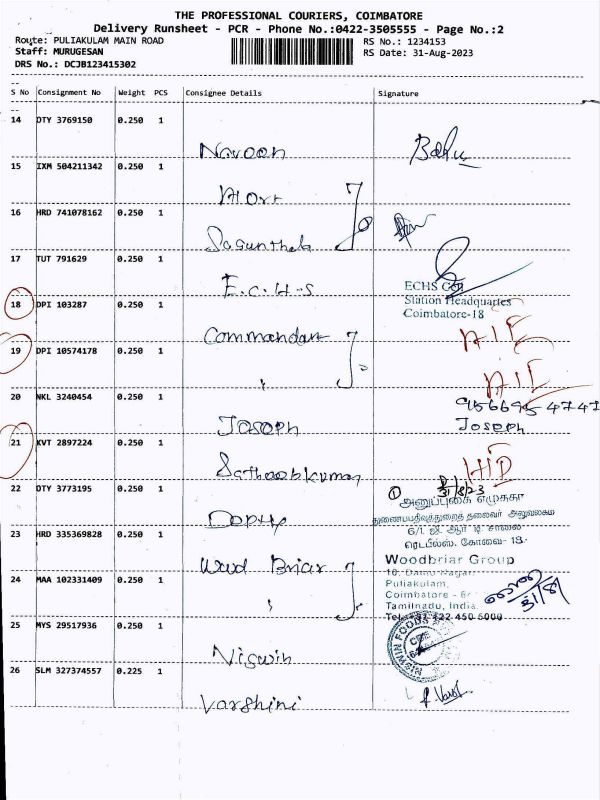 THE PROFESSIONAL COURIERS, COIMBATORE
Delivery Runsheet - PCR - Phone No.:0422-3505555 - Page No.:2
Route: PULIAKULAM MAIN ROAD RS No.: 1234153
Staff: MURUGESAN RS Date: 31-Aug-2023
DRS No.: DCJB123415302
S No Consignment No Weight PCS Consignee Details Signature
14 OTY 3769150 0.250 1
Naveen Babu
15 IXM 504211342 0.250 1
16 HRD 741078162 0.250 1
17 TUT 791629 0.250 1
E.C.H-S
ECHS Cell
Station Headquarters
Coimbatore-18
18 DPI 103287 0.250 1
Commandant
19 DPI 10574178 0.250 1
"
20 NKL 3240454 0.250 1
Joseph
95669 54747
Joseph
21 KVT 2897224 0.250 1
Satheeshkumar
22 OTY 3773195 0.250 1
① 31/8/23
அனுப்புகை எழுத்தர்
துணைப்பதிவுத்துறைத் தலைவர் அலுவலகம்
ரெட்பீல்ஸ், கோவை - 18.
23 HRD 335369828 0.250 1
Wood Briar
Woodbriar Group
Puliakulam,
Coimbatore -
Tamilnadu, India.
24 MAA 102331409 0.250 1
"
31/8/
25 MYS 29517936 0.250 1
Niswin
26 SLM 327374557 0.225 1
Varshini